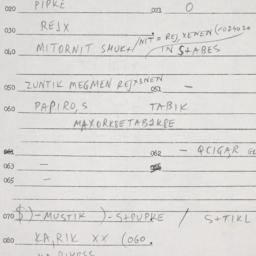 020 PIPKE 021 O
030 REJX
040 MITORNIT SMUK+/NIT = REJXENEN (024020
IN S+ABES
050 ZUNTIK MEGMEN REJXENEN 051 –
060 PAPIRO,S TABIK
MAXORKBETABAKPE
061 062 – QCIGAR
063 –
065 –
070 $)-MUSTIK )-S+PUPKE / S+TIKL
080 KA,RIK XX (060.